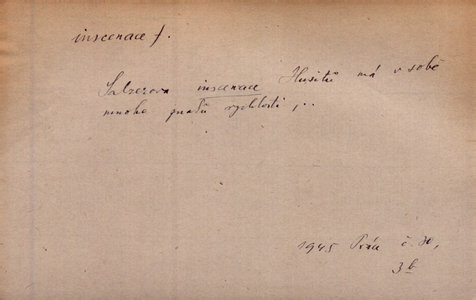 inscenace f.
Salzerova inscenace Husitů má v sobě
mnoho znaků rychlosti,..
1945 Práce č. 30,
3b